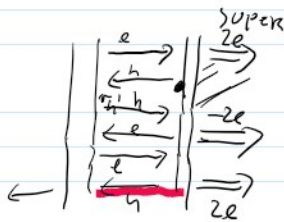 SUPER
e 2e
h
h
e -2e
e
h 2e